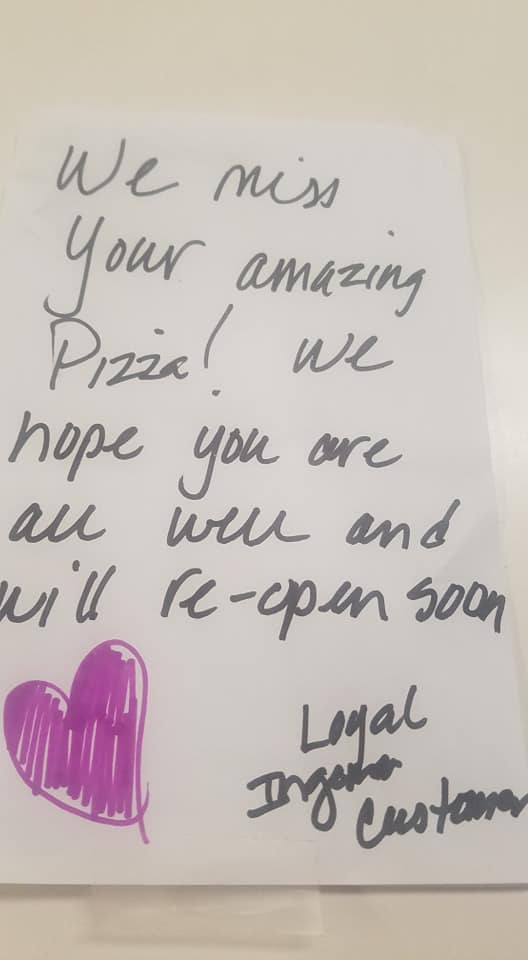 We miss
your amazing
Pizza! We
hope you are
all well and
will re-open soon
Loyal
Customer